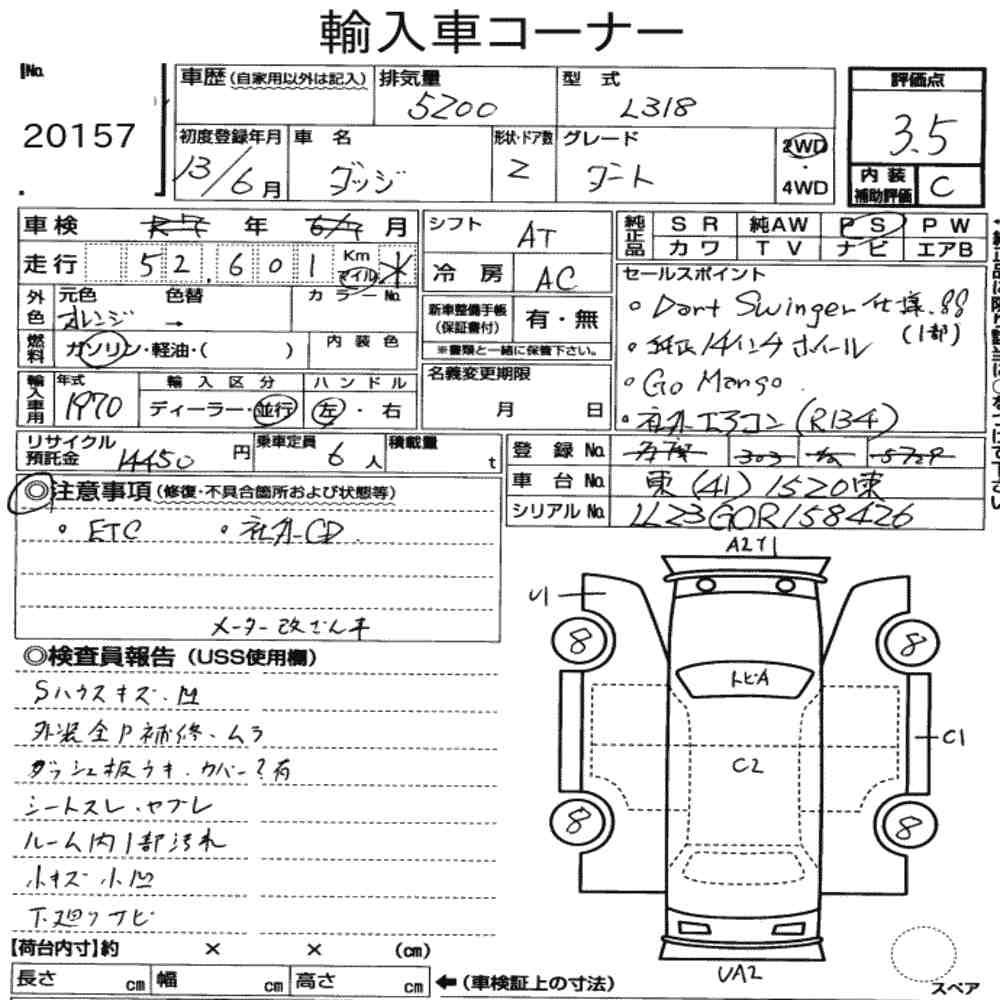 輸入車コーナー
No.
20157
車歴 (自家用以外は記入)
排気量
5200
型 式
L318
評価点
3.5
内装補助評価
C
初度登録年月
13/6月
車 名
ダッジ
形状・ドア数
2
グレード
ダート
2WD
・
4WD
車検 年 月
走行 52,601 Km マイル *
シフト
AT
純正品
SR 純AW PS PW
カワ TV ナビ エアB
冷 房
AC
外色
元色 色替 カラーNo.
オレンジ →
新車整備手帳(保証書付)
有・無
※書類と一緒に保管下さい。
燃料
ガソリン・軽油・( )
内装色
セールスポイント
○ Dart Swinger 仕様.88 (1部)
・純正14インチホイール
○ Go Mango.
・社外エアコン (R134)
輸入車用
年式
1970
輸入区分
ディーラー・並行
ハンドル
左・右
名義変更期限
月 日
リサイクル預託金
14450 円
乗車定員
6人
積載量
t
登録No.
車台No.
東(41)1520東
シリアルNo.
LL23G0R158426
◎注意事項 (修復・不具合箇所および状態等)
・ETC ・社外CD.
メーター改ざん車
◎検査員報告 (USS使用欄)
Sハウスキズ.凹
外装全P補修.ムラ
ダッシュ板ウキ.カバー?有
シートスレ.ヤブレ
ルーム内1部汚れ
小キズ 小凹
下廻りサビ
A2Y1
U1
8
8
トビA
C1
C2
8
8
UA2
スペア
【荷台内寸】約 × × (cm)
長さ cm 幅 cm 高さ cm ←(車検証上の寸法)